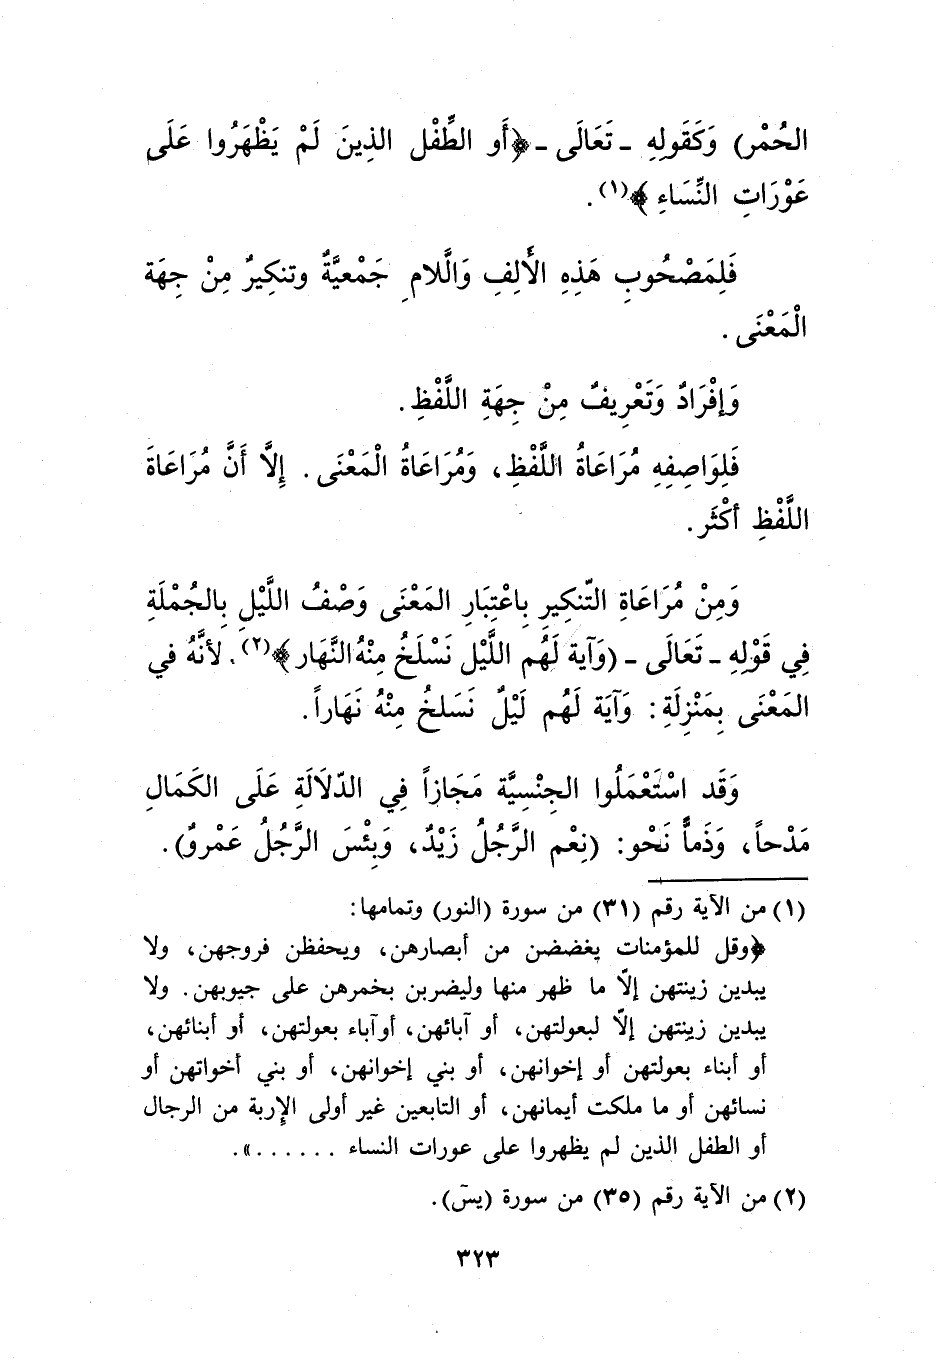 الحُمْر) وَكَقَولِهِ ـ تَعَالَى ـ ﴿أَو الطِّفْل الذِينَ لَمْ يَظْهَرُوا عَلَى
عَوْرَاتِ النِّسَاءِ ﴾(١).
فَلِمَصْحُوبِ هَذِهِ الأَلِفِ وَالَّلامِ جَمْعيَّةٌ وتنكِيرٌ مِنْ جِهَة
الْمَعْنَى .
وَإفْرَادٌ وَتَعْرِيفٌ مِنْ جِهَةِ اللَّفْظِ .
فَلِوَاصِفِهِ مُرَاعَاةُ اللَّفْظِ، وَمُرَاعَاةُ الْمَعْنَى . إلاَّ أَنَّ مُرَاعَاةَ
اللَّفْظِ أكْثَر .
وَمِنْ مُرَاعَاةِ التّنكِيرِ بِاعْتِبَارِ المَعْنَى وَصْفُ اللَّيْلِ بِالجُمْلَةِ
فِي قَوْلِهِ ـ تَعَالَى ـ (وَآية لَهُم اللَّيْل نَسْلَخُ مِنْهُ النَّهَار ﴾(٢). لأنَّهُ في
المَعْنَى بِمَنْزِلَةِ : وَآيَة لَهُم لَيْلٌ نَسَلخُ مِنْهُ نَهَاراً .
وَقَد اسْتَعْمَلُوا الجِنْسِيَّة مَجَازاً فِي الدّلاَلَةِ عَلَى الكَمَالِ
مَدْحاً، وَذَماًّ نَحْو: (نِعْم الرَّجُلُ زَيْدٌ، وَبِئْسَ الرَّجُلُ عَمْروٌ) .
(١) من الآية رقم (٣١) من سورة (النور) وتمامها :
﴿وقل للمؤمنات يغضضن من أبصارهن، ويحفظن فروجهن، ولا
يبدين زينتهن إلاّ ما ظهر منها وليضربن بخمرهن على جيوبهن . ولا
يبدين زينتهن إلاّ لبعولتهن، أو آبائهن، أوآباء بعولتهن، أو أبنائهن،
أو أبناء بعولتهن أو إخوانهن، أو بني إخوانهن، أو بني أخواتهن أو
نسائهن أو ما ملكت أيمانهن، أو التابعين غير أولى الإربة من الرجال
أو الطفل الذين لم يظهروا على عورات النساء . . . . . .».
(٢) من الآية رقم (٣٥) من سورة (يسَ) .
٣٢٣